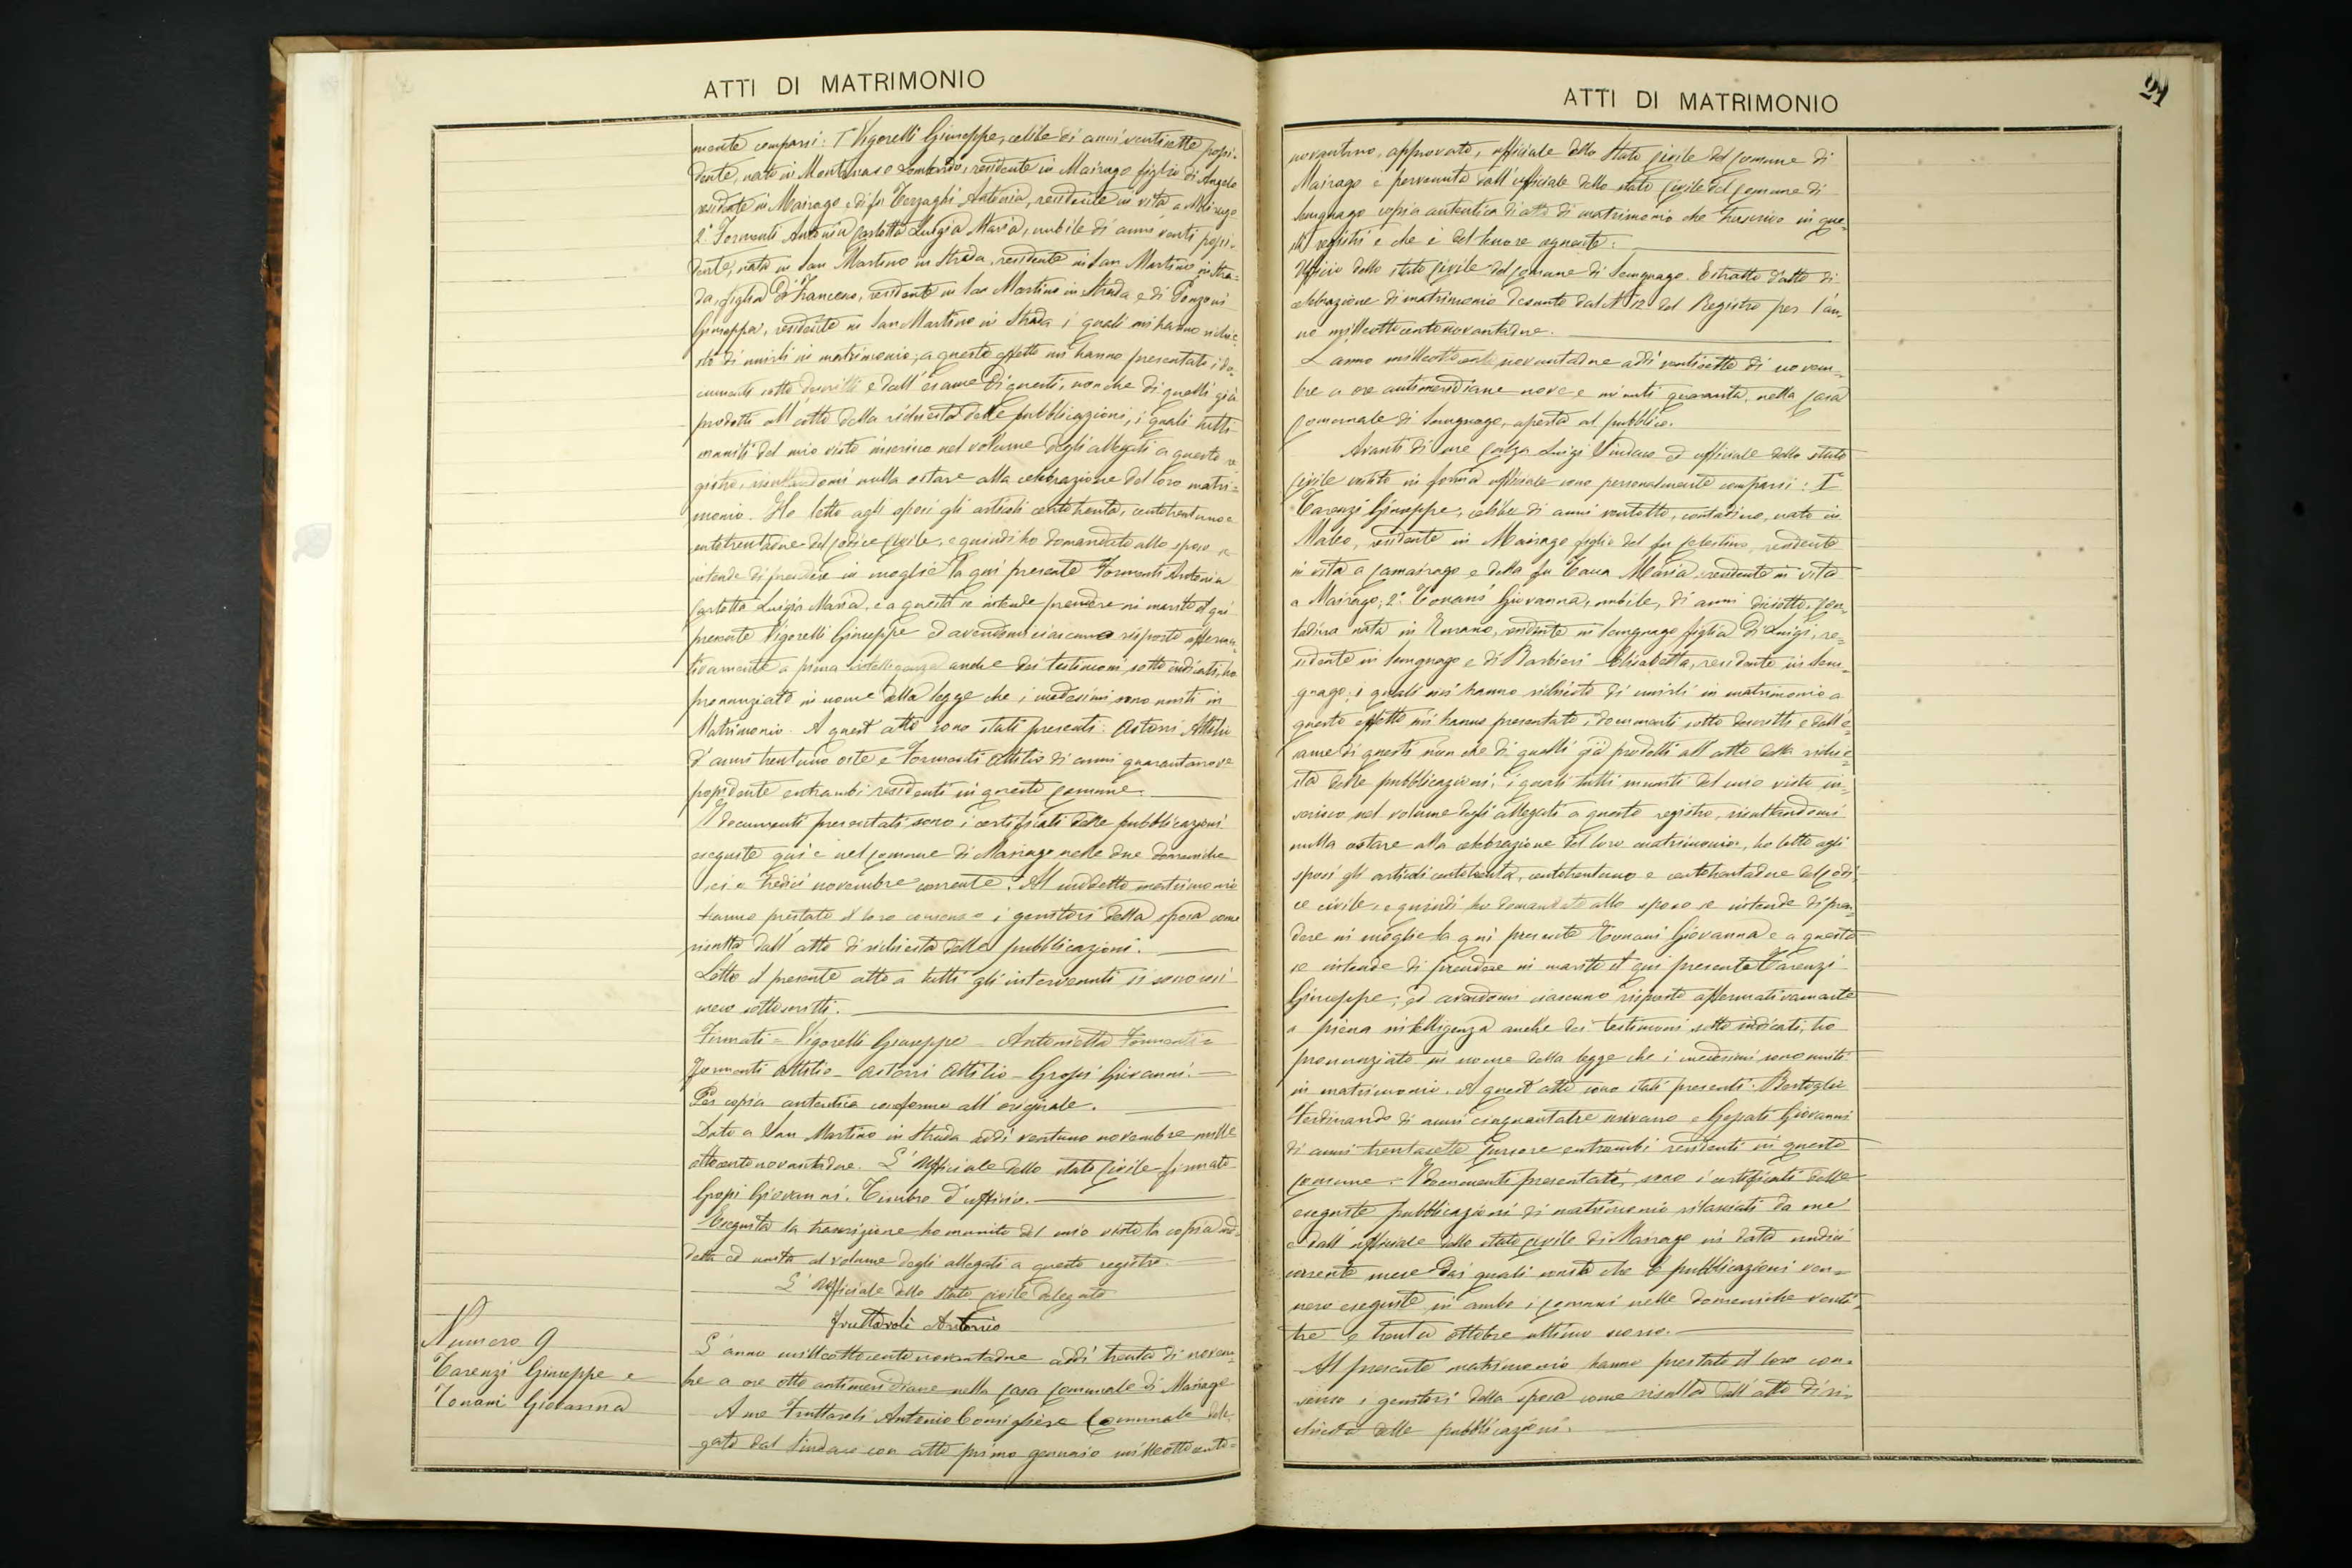 ATTI DI MATRIMONIO
mente comparsi: 1° Vigorelli Giuseppe, celibe di anni ventisette possi-
dente, nato in Montanaso Lombardo, residente in Mairago figlio di Angelo
residente in Mairago e di fu Terzaghi Antonia, residente in vita a Mairago
2° Formenti Antonia Carlotta Luigia Maria, nubile di anni venti possi-
dente, nata in San Martino in Strada, residente in San Martino in Stra-
da, figlia di Francesco, residente in San Martino in Strada e di Ponzoni
Giuseppa, residente in San Martino in Strada i quali mi hanno richie-
sto di unirli in matrimonio; a questo effetto mi hanno presentato i do-
cumenti sotto descritti e dall'esame di questi, nonchè di quelli già
prodotti all'atto della richiesta delle pubblicazioni, i quali tutti
muniti del mio visto inserisco nel volume degli allegati a questo re-
gistro, risultandomi nulla ostare alla celebrazione del loro matri=
monio. Ho letto agli sposi gli articoli centotrenta, centotrentuno e
centotrentadue del Codice Civile, e quindi ho domandato allo sposo se
intende di prendere in moglie la qui presente Formenti Antonia
Carlotta Luigia Maria, e a questa se intende prendere in marito il qui
presente Vigorelli Giuseppe ed avendomi ciascuno risposto afferma-
tivamente a piena intelligenza anche dei testimoni sotto indicati, ho
pronunziato in nome della legge che i medesimi sono uniti in
Matrimonio. A quest'atto sono stati presenti: Astorri Attilio
d'anni trentuno oste e Formenti Attilio di anni quarantanove
possidente entrambi residenti in questo Comune.
I documenti presentati sono i certificati delle pubblicazioni
eseguite qui e nel Comune di Mairago nelle due domeniche
sei e tredici novembre corrente. Al suddetto matrimonio
hanno prestato il loro consenso i genitori della sposa come
risulta dall'atto di richiesta delle pubblicazioni.
Letto il presente atto a tutti gli intervenuti si sono essi
meco sottoscritti.
Firmati = Vigorelli Giuseppe - Antonietta Formenti =
Formenti Attilio - Astorri Attilio - Gropi Giovanni.
Per copia autentica conforme all'originale.
Dato a San Martino in Strada addì ventuno novembre mille
ottocentonovantadue. L'Ufficiale dello stato Civile firmato
Gropi Giovanni. Timbro d'ufficio.
Eseguita la trascrizione ho munito del mio visto la copia sud-
detta ed unita al volume degli allegati a questo registro.
L'Ufficiale dello Stato Civile delegato
Fruttaroli Antonio
Numero 9
Tarenzi Giuseppe e
Tonani Giovanna
L'anno milleottocentonovantadue addì trenta di novem-
bre a ore otto antimeridiane nella Casa Comunale di Mairago
A me Fruttaroli Antonio Consigliere Comunale dele-
gato dal Sindaco con atto primo gennaio milleottocento=
ATTI DI MATRIMONIO
21
novantuno, approvato, ufficiale dello Stato Civile del Comune di
Mairago è pervenuta dall'ufficiale dello stato Civile del Comune di
Senguago copia autentica di atto di matrimonio che trascrivo in que=
sti registri e che è del tenore seguente:
Ufficio dello stato Civile del Comune di Senguago. Estratto d'atto di
celebrazione di matrimonio desunto dal N. 12 del Registro per l'an-
no milleottocentonovantadue.
L'anno milleottocentonovantadue addì ventisette di novem-
bre a ore antimeridiane nove e minuti quaranta, nella Casa
Comunale di Senguago, aperta al pubblico.
Avanti di me Calza Luigi Sindaco ed ufficiale dello stato
Civile vestito in forma ufficiale sono personalmente comparsi: 1°
Tarenzi Giuseppe, celibe di anni ventotto, contadino, nato in
Maleo, residente in Mairago figlio del fu Celestino, residente
in vita a Camairago e della fu Maria residente in vita
a Mairago; 2° Tonani Giovanna, nubile, di anni diciotto, con-
tadina nata in residente in Senguago figlia di Luigi, re=
sidente in Senguago e di Barbieri Elisabetta, residente in Sen-
guago; i quali mi hanno richiesto di unirli in matrimonio a
questo effetto mi hanno presentato i documenti sotto descritti e dall'e=
same di questi non che di quelli già prodotti all'atto della richie=
sta delle pubblicazioni, i quali tutti muniti del mio visto in-
serisco nel volume degli allegati a questo registro, risultandomi
nulla ostare alla celebrazione del loro matrimonio, ho letto agli
sposi gli articoli centotrenta, centotrentuno e centotrentadue del Codi-
ce civile, e quindi ho domandato allo sposo se intende di pren-
dere in moglie la qui presente Tonani Giovanna e a questa
se intende di prendere in marito il qui presente Tarenzi
Giuseppe; ed avendomi ciascuno risposto affermativamente
a piena intelligenza anche dei testimoni sotto indicati, ho
pronunziato in nome della legge che i medesimi sono uniti
in matrimonio. A quest'atto sono stati presenti: Bertoglio
Ferdinando di anni cinquantatre scrivano e Giovanni
di anni trentasette Cursore entrambi residenti in questo
Comune. I documenti presentati, sono i certificati delle
eseguite pubblicazioni di matrimonio rilasciati da me
e dall'ufficiale dello stato civile di Mairago in data undici
corrente mese dai quali consta che le pubblicazioni ven=
nero eseguite in ambo i Comuni nelle domeniche venti-
tre e trenta ottobre ultimo scorso.
Al presente matrimonio hanno prestato il loro con-
senso i genitori della sposa come risulta dall'atto di ri-
chiesta delle pubblicazioni.